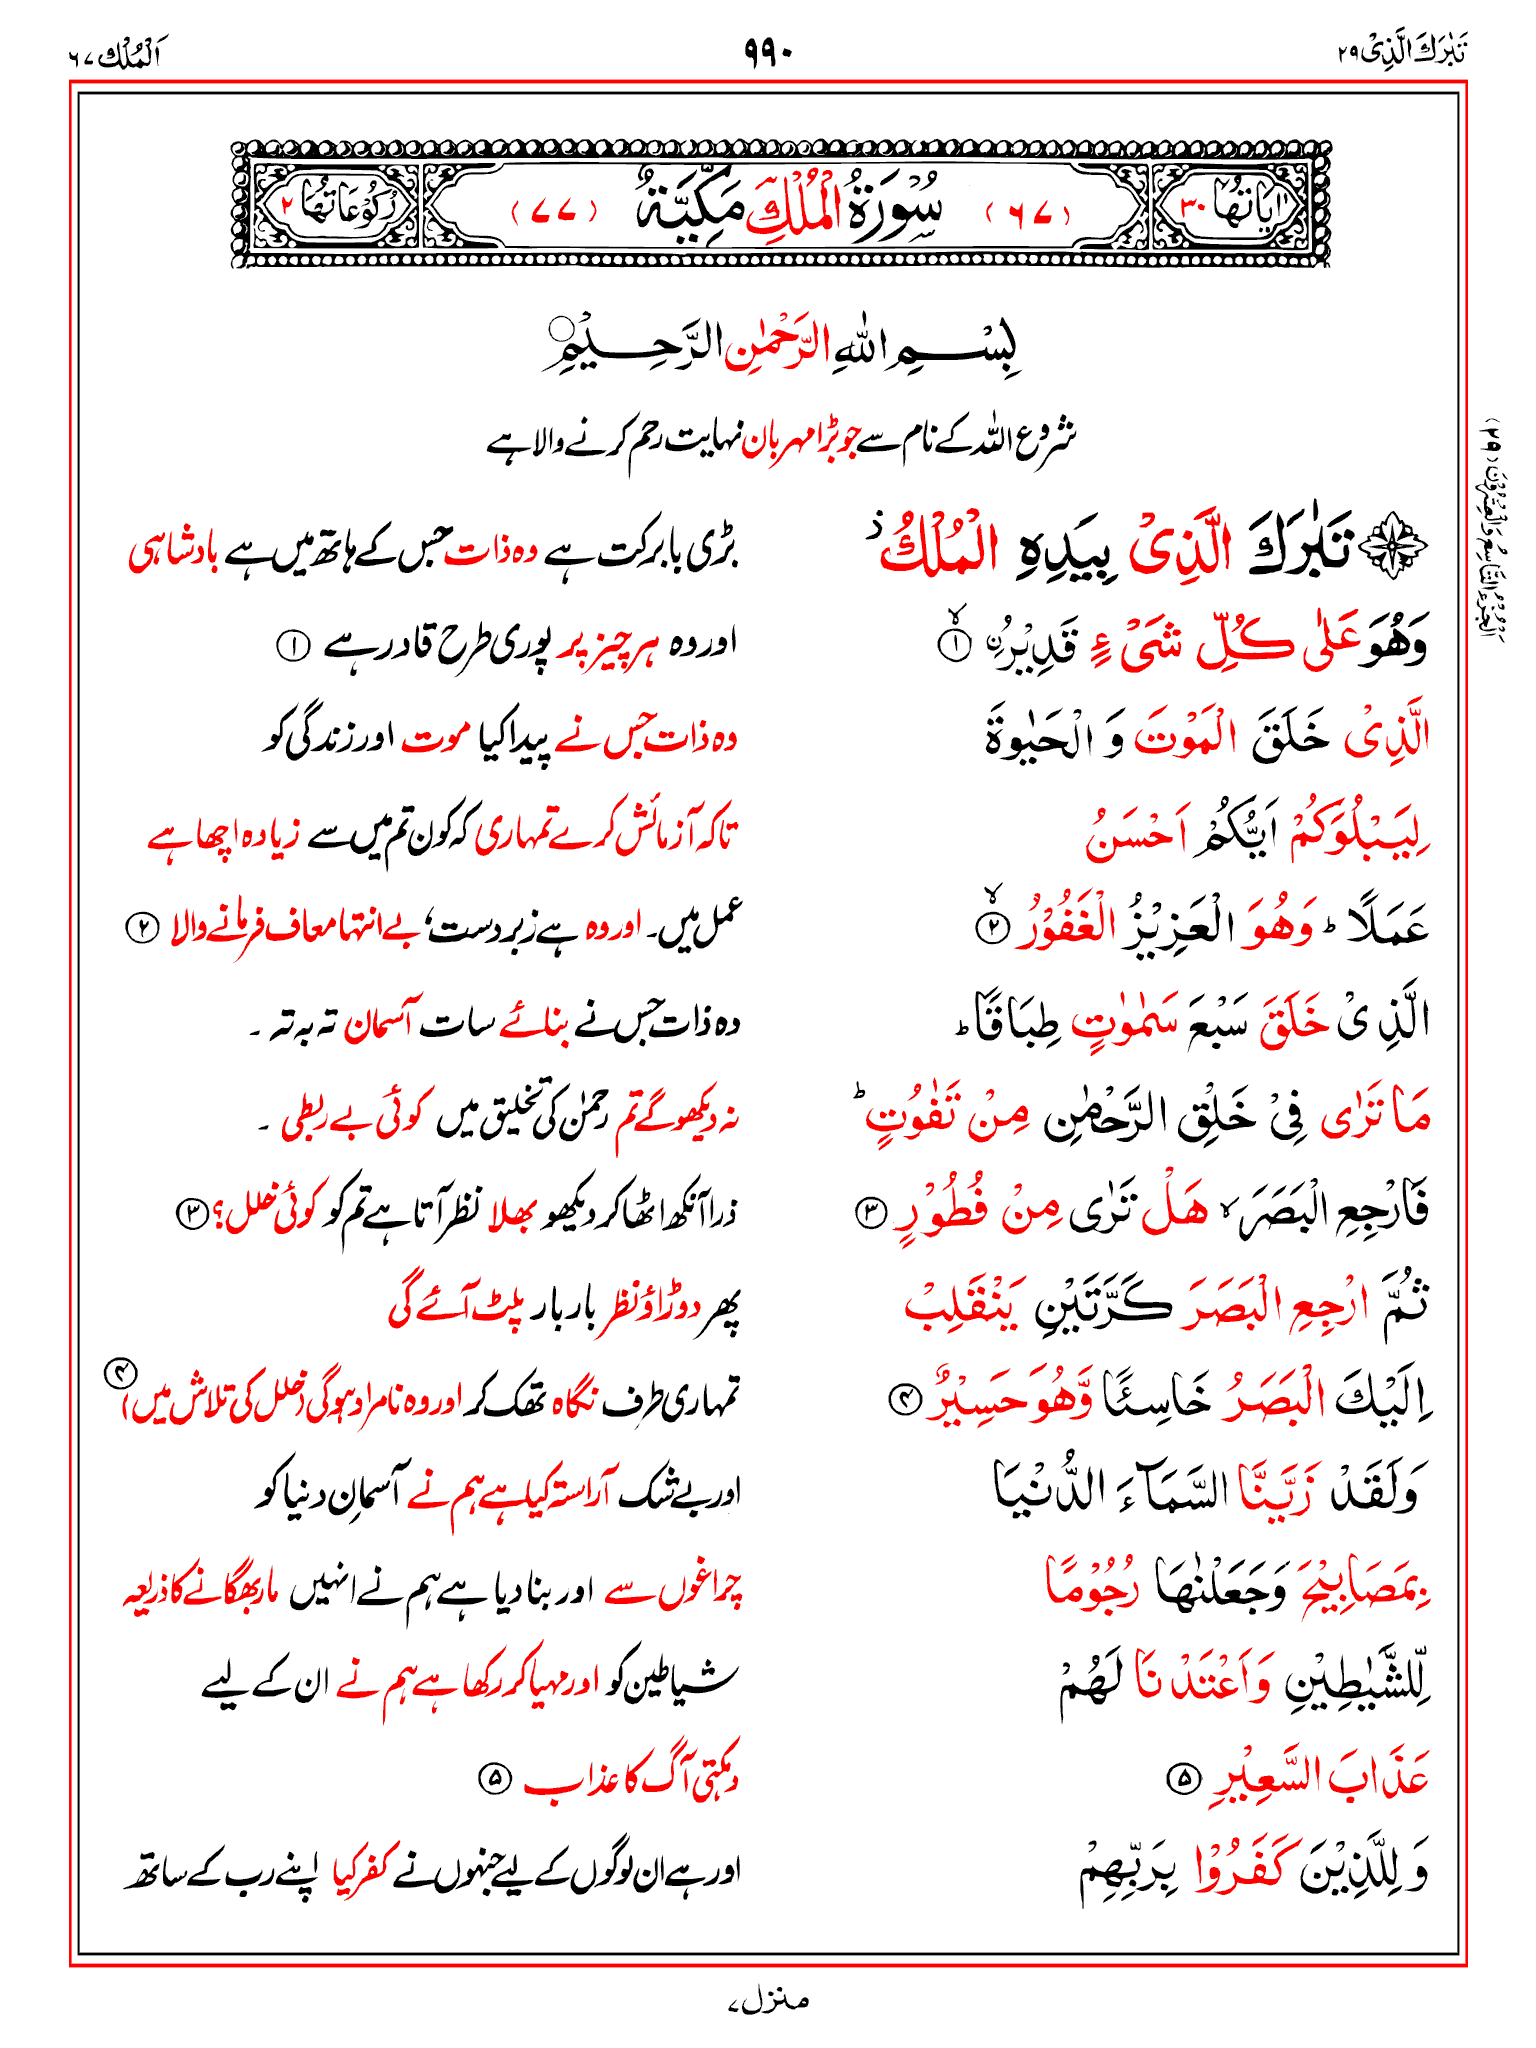 تَبٰرَكَ الَّذِیْ ٢٩
٩٩٠
اَلْمُلْك ٦٧
اٰیَاتُهَا ٣٠
(٦٧) سُوْرَةُ الْمُلْكِ مَكِّیَّةٌ (٧٧)
رُكُوْعَاتُهَا ٢
بِسْمِ اللّٰهِ الرَّحْمٰنِ الرَّحِیْمِ
شروع اللہ کے نام سے جو بڑا مہربان نہایت رحم کرنے والا ہے
تَبٰرَكَ الَّذِیْ بِیَدِهِ الْمُلْكُ ز
بڑی بابرکت ہے وہ ذات جس کے ہاتھ میں ہے بادشاہی
وَهُوَ عَلٰی كُلِّ شَیْءٍ قَدِیْرُ ۨ ۙ ١
اور وہ ہر چیز پر پوری طرح قادر ہے ۱
الَّذِیْ خَلَقَ الْمَوْتَ وَ الْحَیٰوةَ
وہ ذات جس نے پیدا کیا موت اور زندگی کو
لِیَبْلُوَكُمْ اَیُّكُمْ اَحْسَنُ
تاکہ آزمائش کرے تمہاری کہ کون تم میں سے زیادہ اچھا ہے
عَمَلًا ؕ وَهُوَ الْعَزِیْزُ الْغَفُوْرُ ۙ ٢
عمل میں۔ اور وہ ہے زبردست، بے انتہا معاف فرمانے والا ۲
الَّذِیْ خَلَقَ سَبْعَ سَمٰوٰتٍ طِبَاقًا ؕ
وہ ذات جس نے بنائے سات آسمان تہ بہ تہ۔
مَا تَرٰی فِیْ خَلْقِ الرَّحْمٰنِ مِنْ تَفٰوُتٍ ؕ
نہ دیکھو گے تم رحمٰن کی تخلیق میں کوئی بے ربطی۔
فَارْجِعِ الْبَصَرَ ۙ هَلْ تَرٰی مِنْ فُطُوْرٍ ٣
ذرا آنکھ اٹھا کر دیکھو بھلا نظر آتا ہے تم کو کوئی خلل؟ ۳
ثُمَّ ارْجِعِ الْبَصَرَ كَرَّتَیْنِ یَنْقَلِبْ
پھر دوڑاؤ نظر بار بار پلٹ آئے گی
اِلَیْكَ الْبَصَرُ خَاسِئًا وَّهُوَ حَسِیْرٌ ۴
تمہاری طرف نگاہ تھک کر اور وہ نامراد ہوگی (خلل کی تلاش میں) ۴
وَلَقَدْ زَیَّنَّا السَّمَآءَ الدُّنْیَا
اور بے شک آراستہ کیا ہے ہم نے آسمانِ دنیا کو
بِمَصَابِیْحَ وَجَعَلْنٰهَا رُجُوْمًا
چراغوں سے اور بنا دیا ہے ہم نے انہیں مار بھگانے کا ذریعہ
لِّلشَّیٰطِیْنِ وَاَعْتَدْنَا لَهُمْ
شیاطین کو اور مہیا کر رکھا ہے ہم نے ان کے لیے
عَذَابَ السَّعِیْرِ ۵
دہکتی آگ کا عذاب ۵
وَ لِلَّذِیْنَ كَفَرُوْا بِرَبِّهِمْ
اور ہے ان لوگوں کے لیے جنہوں نے کفر کیا اپنے رب کے ساتھ
اَلْجُزْءُ التَّاسِعُ وَالْعِشْرُوْنَ (٢٩)
منزل ۷